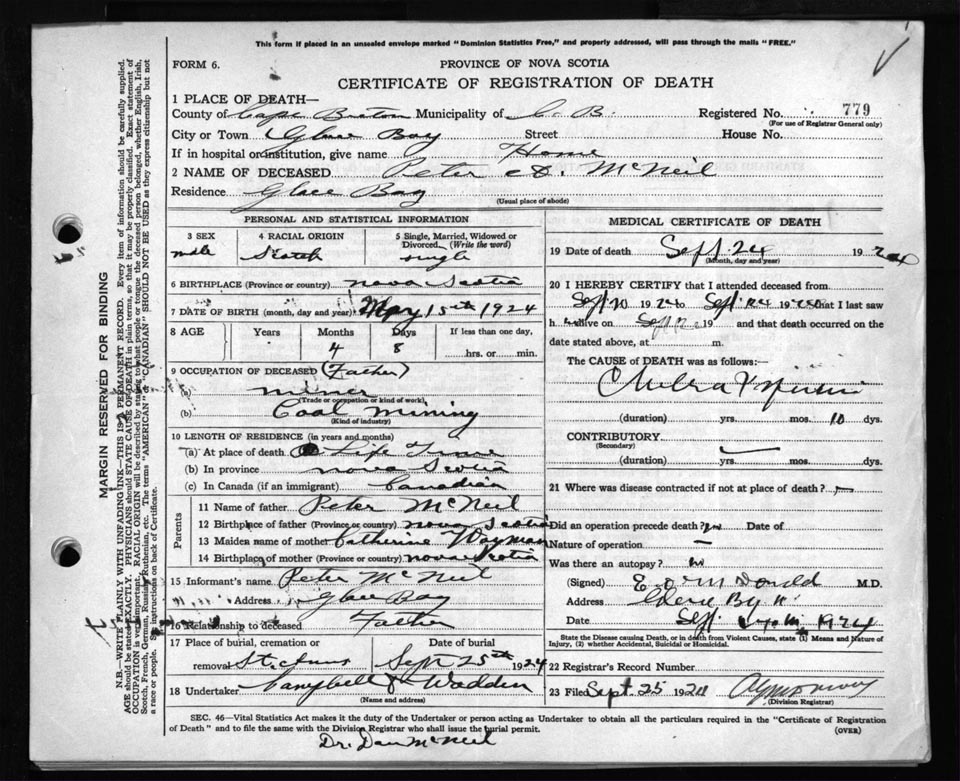 This form if placed in an unsealed envelope marked "Dominion Statistics Free," and properly addressed, will pass through the mails "FREE."
FORM 6.
PROVINCE OF NOVA SCOTIA
CERTIFICATE OF REGISTRATION OF DEATH
1 PLACE OF DEATH—
County of Cape Breton Municipality of C. B. Registered No. 779
(For use of Registrar General only)
City or Town Glace Bay Street House No.
If in hospital or institution, give name Home
2 NAME OF DECEASED Peter McNeil
Residence Glace Bay
(Usual place of abode)
PERSONAL AND STATISTICAL INFORMATION
3 SEX 4 RACIAL ORIGIN 5 Single, Married, Widowed or Divorced (Write the word)
male Scotch single
6 BIRTHPLACE (Province or country) Nova Scotia
7 DATE OF BIRTH (month, day and year) May 15th 1924
8 AGE Years Months Days If less than one day,
4 8 hrs. or min.
9 OCCUPATION OF DECEASED (Father)
(a) miner
(Trade or occupation or kind of work)
(b) Coal mining
(Kind of industry)
10 LENGTH OF RESIDENCE (in years and months)
(a) At place of death Life Time
(b) In province Nova Scotia
(c) In Canada (if an immigrant) Canadian
Parents
11 Name of father Peter McNeil
12 Birthplace of father (Province or country) Nova Scotia
13 Maiden name of mother Catherine
14 Birthplace of mother (Province or country) Nova Scotia
15 Informant's name Peter McNeil
Address Glace Bay
16 Relationship to deceased Father
17 Place of burial, cremation or removal Date of burial
St. Anns Sept 25th 1924
18 Undertaker Campbell & Wadden
(Name and address)
MEDICAL CERTIFICATE OF DEATH
19 Date of death Sept. 24 1924
(Month, day and year)
20 I HEREBY CERTIFY that I attended deceased from
Sept 1924 to Sept 1924 that I last saw
h alive on Sept 19 and that death occurred on the
date stated above, at m.
The CAUSE of DEATH was as follows:—
Cholera
(duration) yrs. mos. 10 dys.
CONTRIBUTORY
(Secondary)
(duration) yrs. mos. dys.
21 Where was disease contracted if not at place of death?
Did an operation precede death? no Date of
Nature of operation —
Was there an autopsy? no
(Signed) McDonald M.D.
Address Glace Bay
Date Sept. 1924
State the Disease causing Death, or in death from Violent Causes, state (1) Means and Nature of Injury, (2) whether Accidental, Suicidal or Homicidal.
22 Registrar's Record Number
23 Filed Sept. 25 1924
(Division Registrar)
SEC. 46—Vital Statistics Act makes it the duty of the Undertaker or person acting as Undertaker to obtain all the particulars required in the "Certificate of Registration
of Death" and to file the same with the Division Registrar who shall issue the burial permit.
(OVER)
Dr. Dan McNeil
MARGIN RESERVED FOR BINDING
N.B.—WRITE PLAINLY WITH UNFADING INK—THIS IS A PERMANENT RECORD. Every item of information should be carefully supplied.
AGE should be stated EXACTLY. PHYSICIANS should STATE CAUSE OF DEATH in plain terms, so that it may be properly classified. Exact statement of
OCCUPATION is very important. RACIAL ORIGIN will be described by stating to what people or tongue the deceased person belonged, whether English, Irish,
Scotch, French, German, Russian, Ruthenian, etc. The terms "AMERICAN" & "CANADIAN" SHOULD NOT BE USED as they express citizenship but not
a race or people. See instructions on back of Certificate.